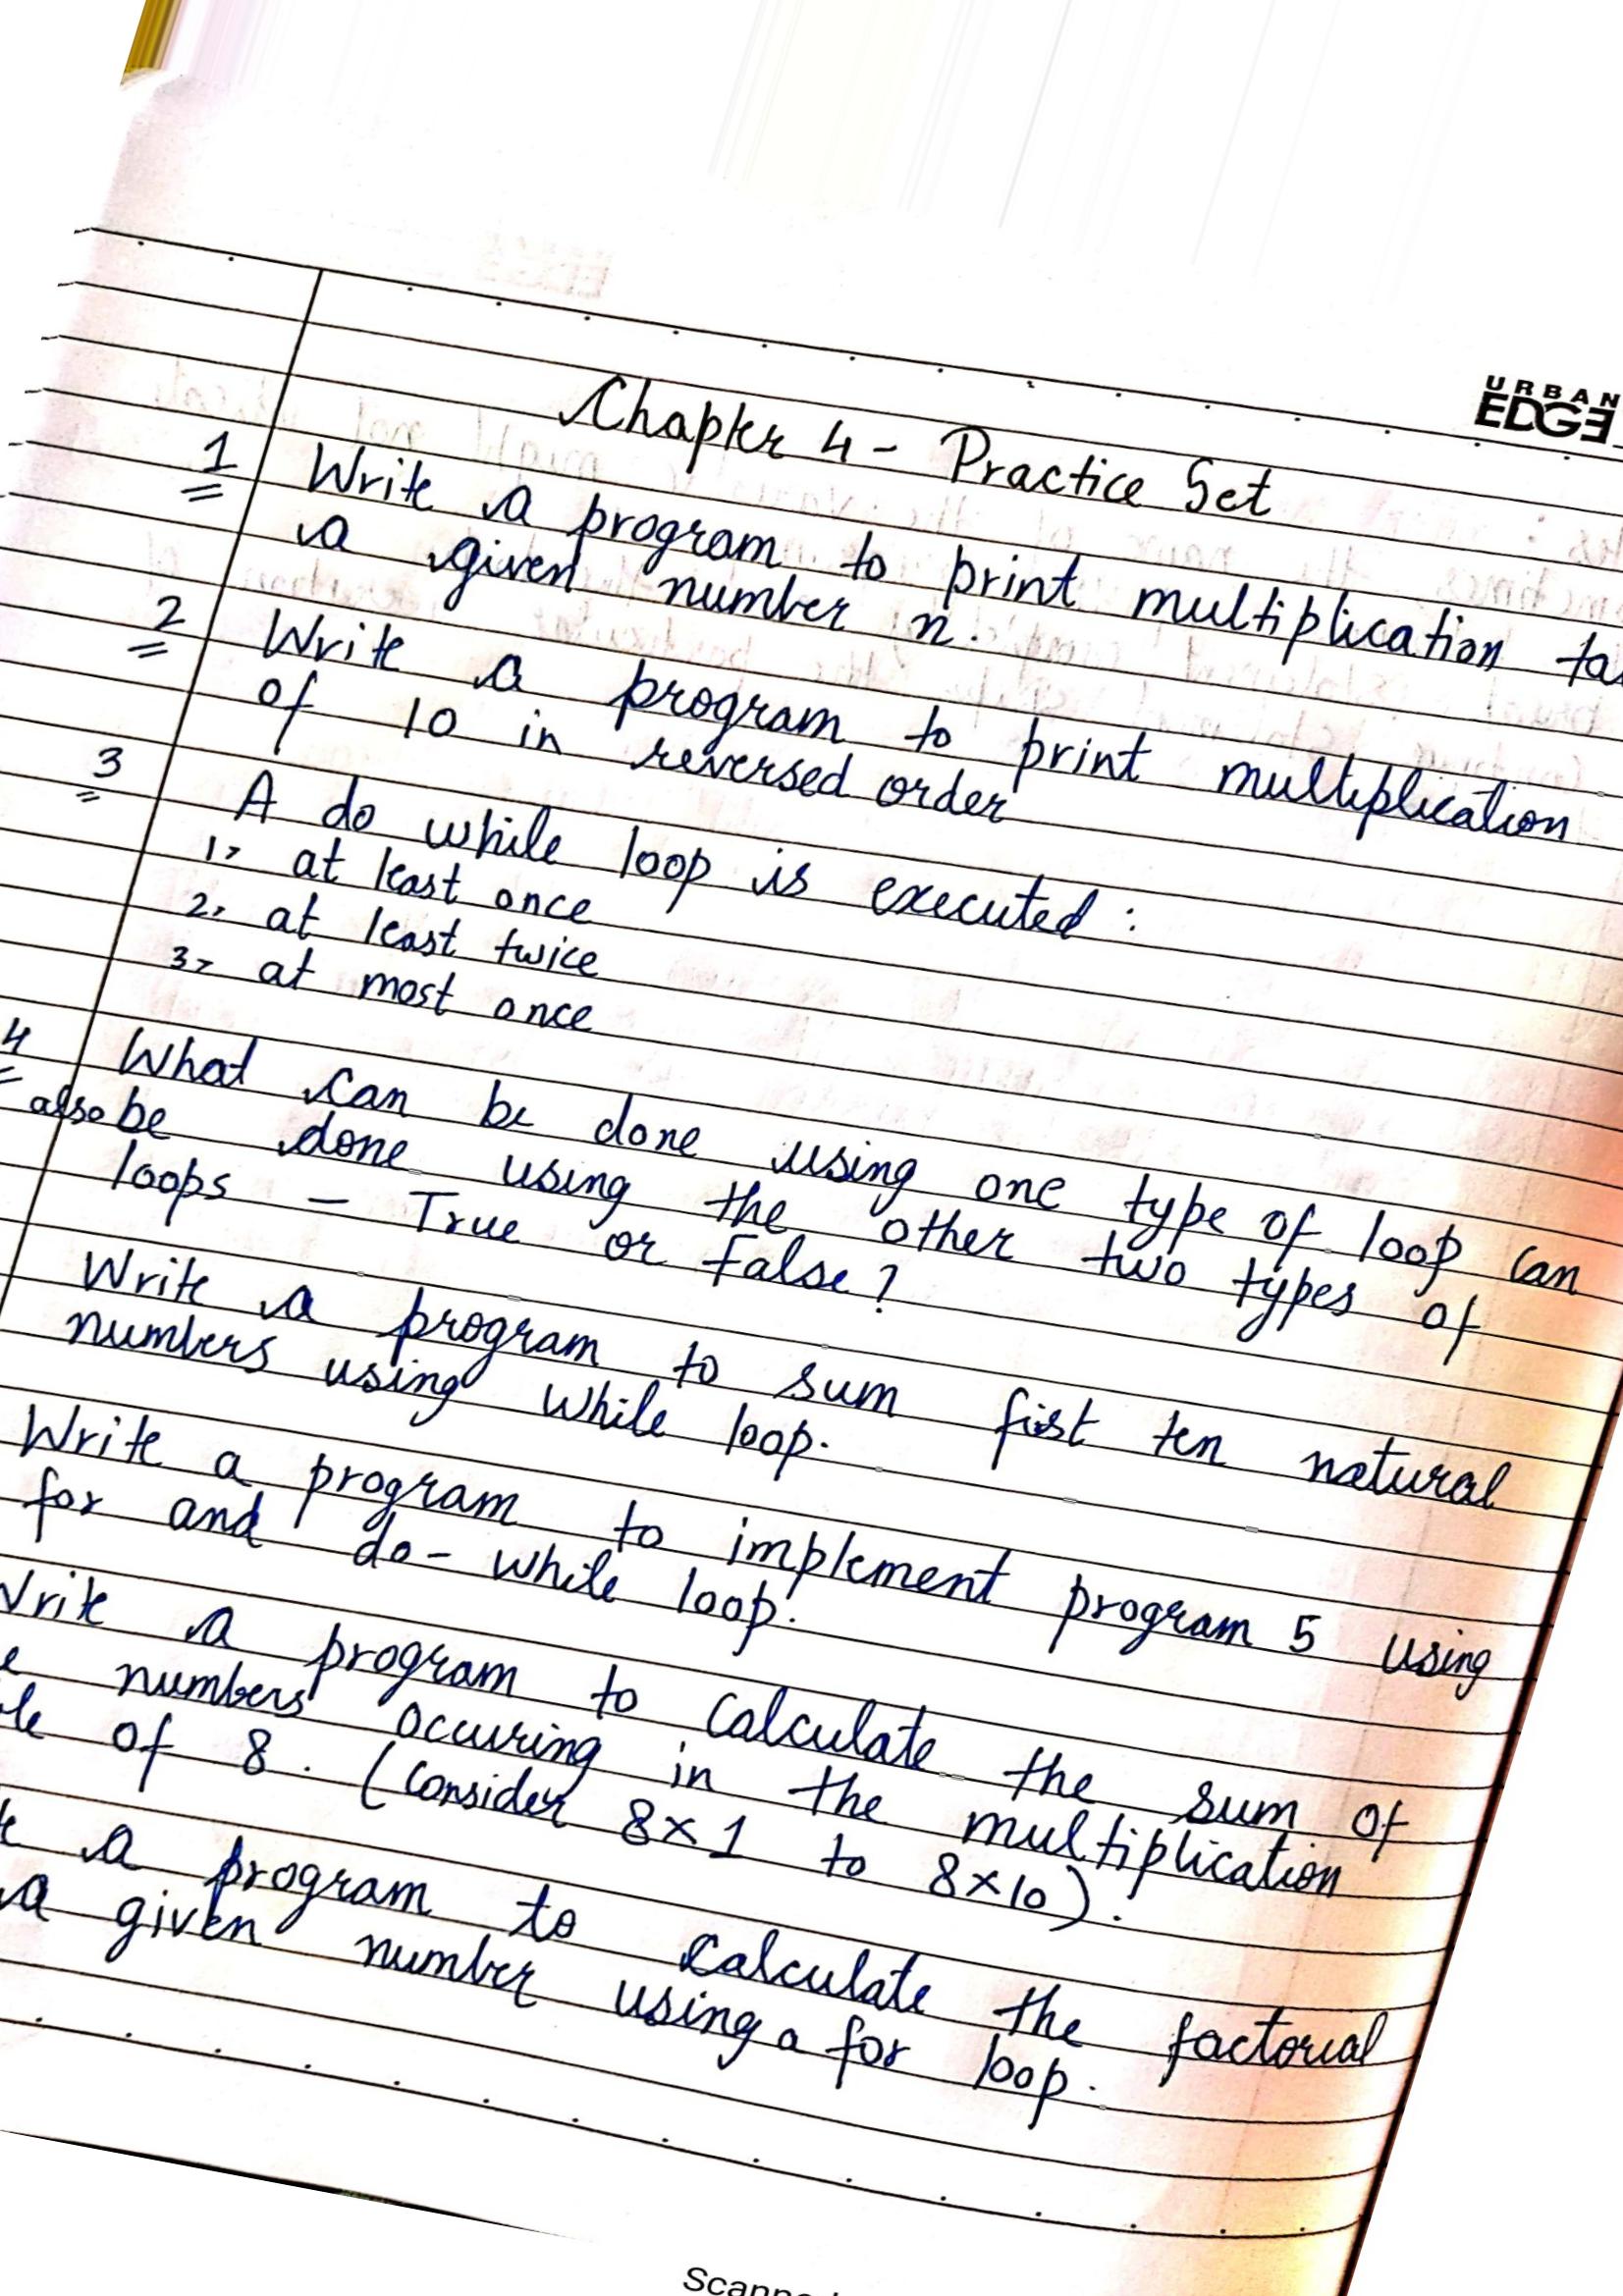 URBAN
EDGE
Chapter 4 - Practice Set
1 Write a program to print multiplication ta
a given number n.
2 Write a program to print multiplication
of 10 in reversed order
3 A do while loop is executed :
1> at least once
2> at least twice
3> at most once
4 What can be done using one type of loop can
also be done using the other two types of
loops - True or False?
Write a program to sum first ten natural
numbers using while loop.
Write a program to implement program 5 using
for and do-while loop.
Write a program to calculate the sum of
e numbers occuring in the multiplication
ble of 8. (Consider 8×1 to 8×10).
te a program to calculate the factorial
a given number using a for loop.